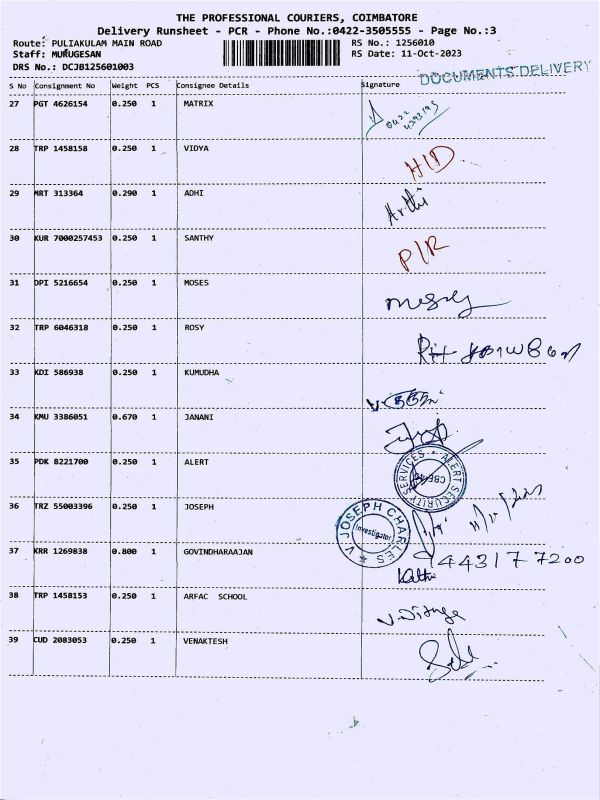 THE PROFESSIONAL COURIERS, COIMBATORE
Delivery Runsheet - PCR - Phone No.:0422-3505555 - Page No.:3
Route: PULIAKULAM MAIN ROAD RS No.: 1256010
Staff: MURUGESAN RS Date: 11-Oct-2023
DRS No.: DCJB125601003
DOCUMENTS DELIVERY
S No Consignment No Weight PCS Consignee Details Signature
27 PGT 4626154 0.250 1 MATRIX
0422
4393195
28 TRP 1458158 0.250 1 VIDYA H/D.
29 MRT 313364 0.290 1 ADHI Arthi
30 KUR 7000257453 0.250 1 SANTHY P/R
31 DPI 5216654 0.250 1 MOSES
32 TRP 6046318 0.250 1 ROSY
33 KDI 586938 0.250 1 KUMUDHA
34 KMU 3386051 0.670 1 JANANI
35 PDK 8221700 0.250 1 ALERT
ALERT SECURITY SERVICES
36 TRZ 55003396 0.250 1 JOSEPH
V JOSEPH CHARLES
Investigator
37 KRR 1269838 0.800 1 GOVINDHARAAJAN 944317 7200
38 TRP 1458153 0.250 1 ARFAC SCHOOL
39 CUD 2083053 0.250 1 VENAKTESH